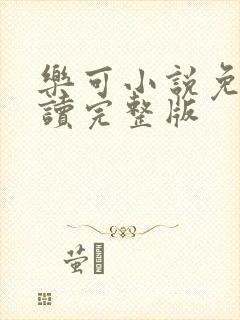 樂可小說免
讀完整版
萤